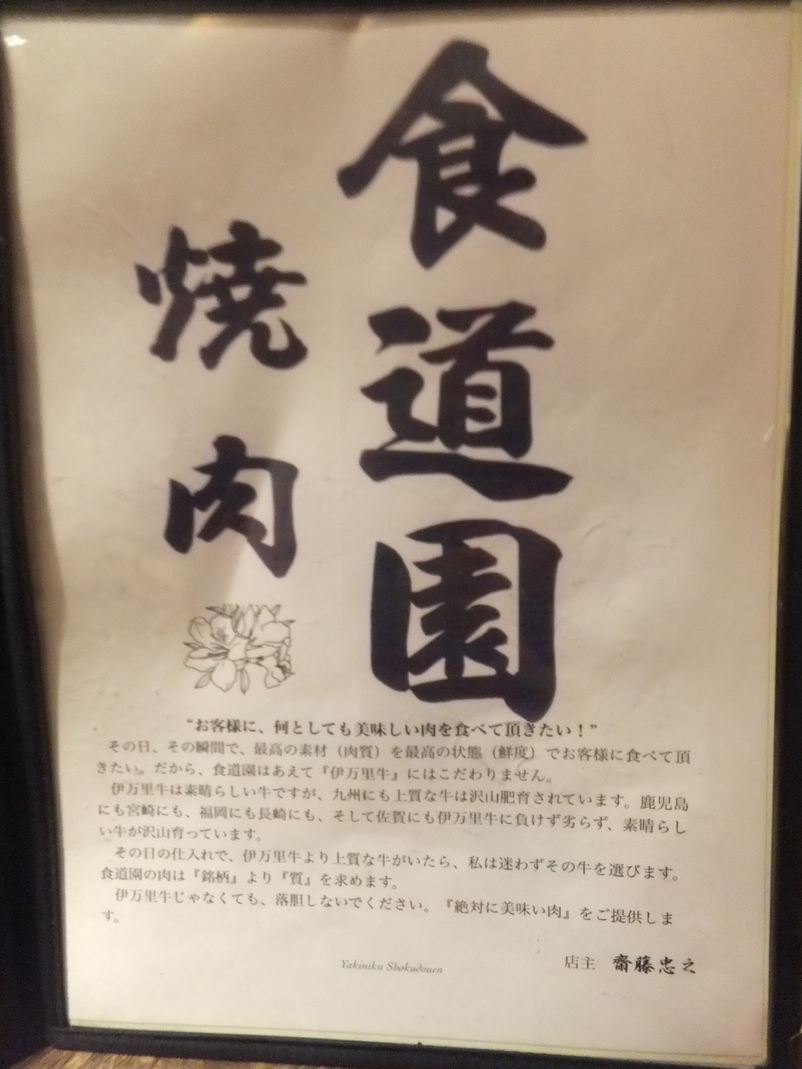 食道園
焼肉
“お客様に、何としても美味しい肉を食べて頂きたい！”
その日、その瞬間で、最高の素材（肉質）を最高の状態（鮮度）でお客様に食べて頂
きたい。だから、食道園はあえて『伊万里牛』にはこだわりません。
伊万里牛は素晴らしい牛ですが、九州にも上質な牛は沢山肥育されています。鹿児島
にも宮崎にも、福岡にも長崎にも、そして佐賀にも伊万里牛に負けず劣らず、素晴らし
い牛が沢山育っています。
その日の仕入れで、伊万里牛より上質な牛がいたら、私は迷わずその牛を選びます。
食道園の肉は『銘柄』より『質』を求めます。
伊万里牛じゃなくても、落胆しないでください。『絶対に美味い肉』をご提供しま
す。
Yakiniku Shokudouen
店主 齋藤忠之